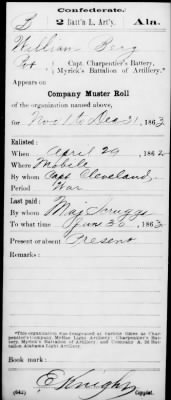 Confederate.
2 Batt'n L. Art'y. Ala.
William
Pvt Capt. Charpentier's Battery,
Myrick's Battalion of Artillery.*
Appears on
Company Muster Roll
of the organization named above,
for Nov 1 to Dec 31, 1863
Enlisted:
When April 29, 1862
Where Mobile
By whom Capt Cleveland
Period War
Last paid:
By whom Maj Scruggs
To what time June 30, 1863
Present or absent Present
Remarks:
*This organization was designated at various times as Charpentier's Company Mobile Light Artillery; Charpentier's Battery, Myrick's Battalion of Artillery; and Company A, 2d Battalion Alabama Light Artillery.
Book mark:
E Knight
(642) Copyist.